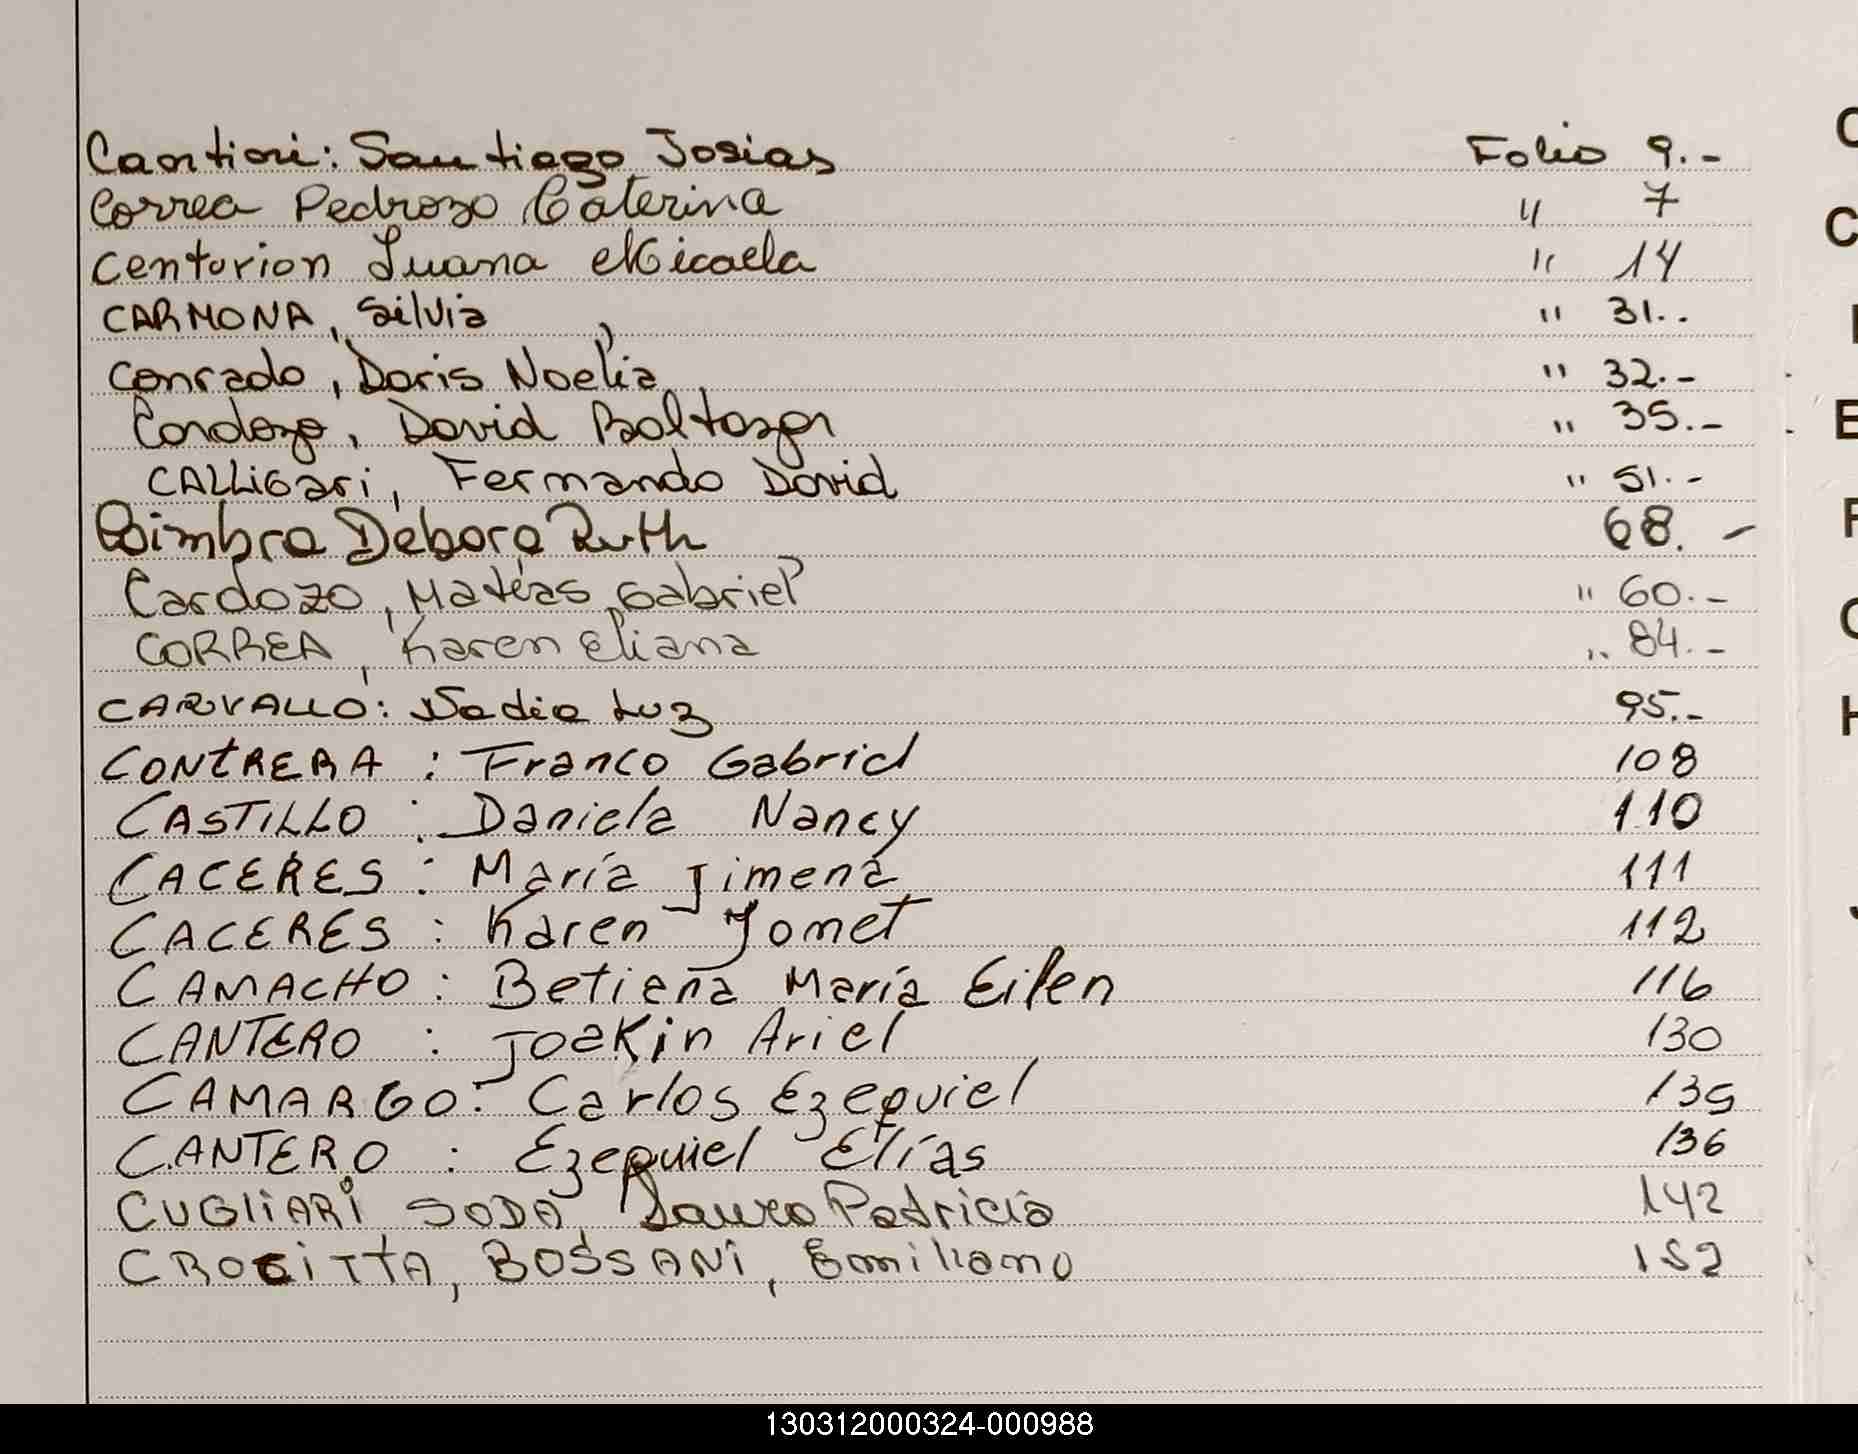 Cantini: Santiago Josias Folio 9.-
Correa Pedrozo Caterina " 7
Centurion Luana Micaela " 14
CARMONA, Silvia " 31..
Conrado, Doris Noelia " 32.-
Cardozo, David Baltazar " 35.-
CALLiGari, Fernando David " 51.-
Coimbra Debora Ruth 68. -
Cardozo, Matías Gabriel " 60.-
CORREA, Karen Eliana " 84.-
CARVALLO: Nadia Luz 95.-
CONTRERA : Franco Gabriel 108
CASTILLO : Daniela Nancy 110
CACERES : María Jimena 111
CACERES : Karen Yomet 112
CAMACHO : Betiana María Eilen 116
CANTERO : Joakin Ariel 130
CAMARGO: Carlos Ezequiel 135
CANTERO : Ezequiel Elías 136
CUGLiARi SODA, Laura Patricia 142
CROCiTTA, BOSSANi, Emiliano 152
C
C
E
F
H
130312000324-000988